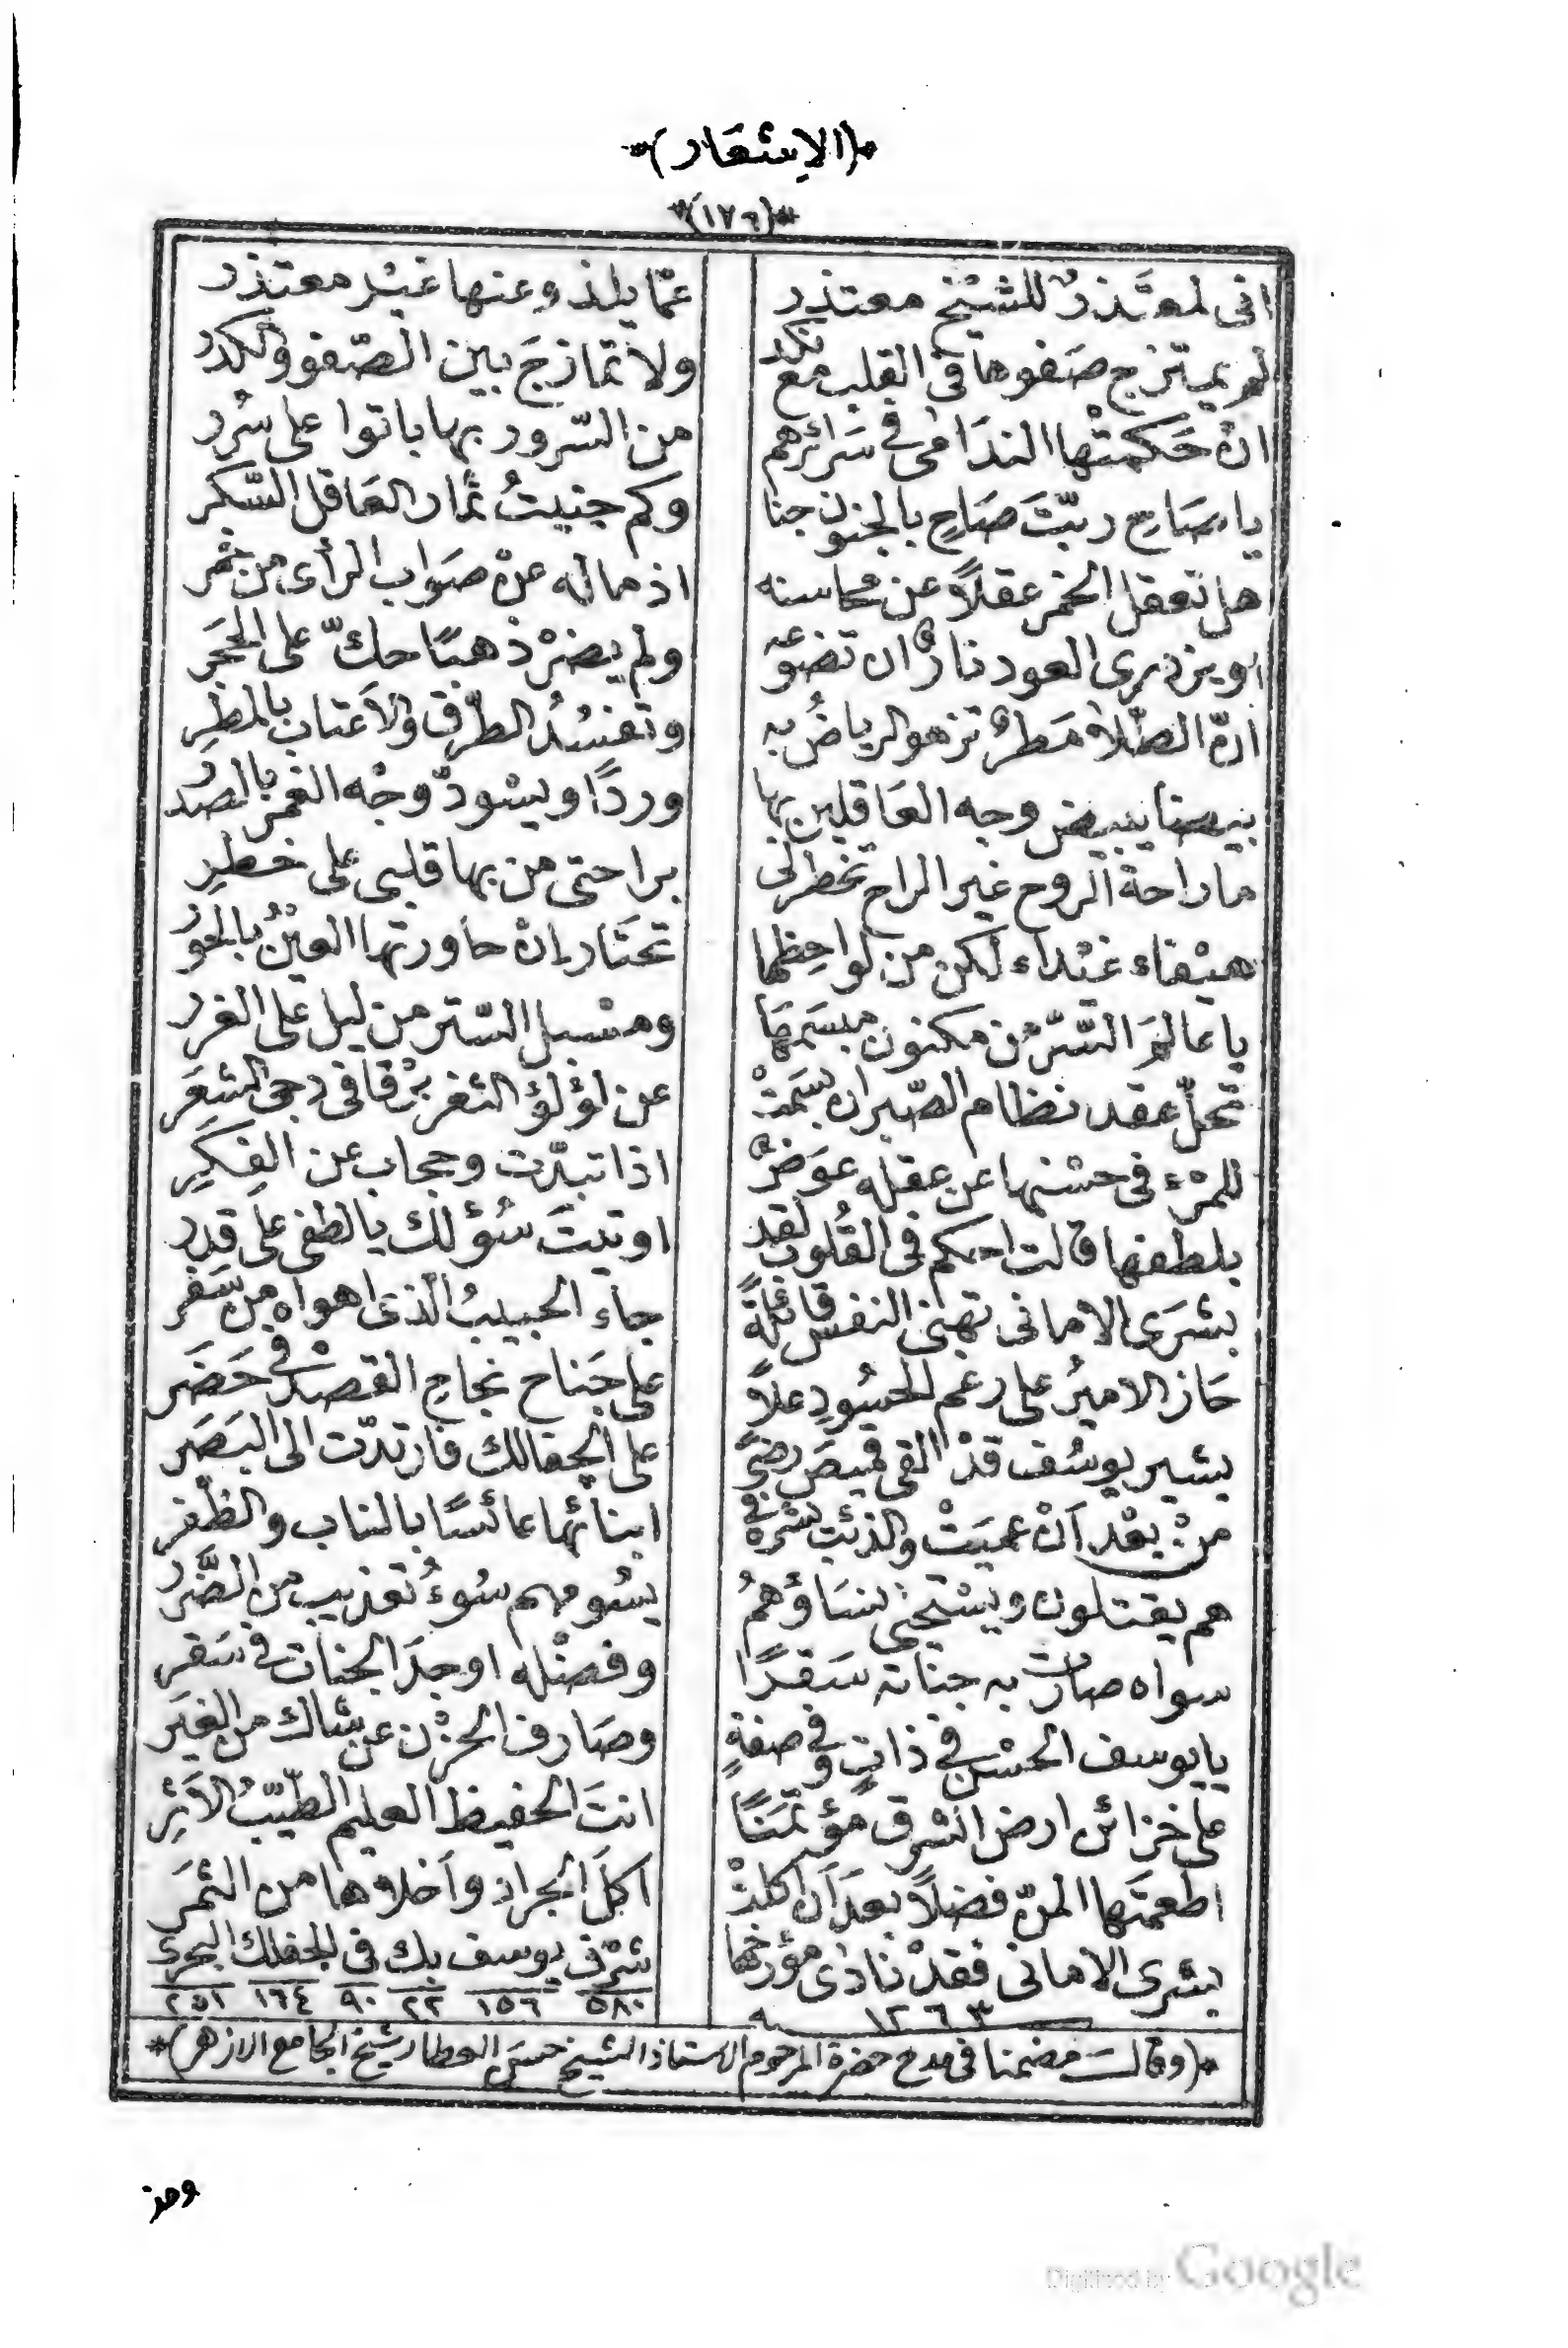 *(الاشعار)*
*(١٧٦)*
انى لمعتذرٌ للشيخ معتذر عمّا يلذ وعنها غيْر معتذر
لم يمتزج صَفوها فى القلب مع نكد ولا تمازجَ بين الصّفو والكدر
انْ حَكمتْها الندَامٰى فى سَرائرهم من السّرور بها باتوا على سُرر
يا صَاح ربّتَ صَاحٍ بالجنون جنا وكم جنيتُ ثمار العَاقل السَّكر
هل تعقل الخمر عقلاً عن محاسنه اذ ماله عنْ صوَاب الرأى من خمر
او يزدرى العود نارٌ ان تضوّعه ولم يضرْ ذهبًا حكّ على الحجَر
انّ الطّلا مَطرٌ تزهو الرياضُ به وتفسُدُ الطّرق والاَعتاب بالمطرِ
بيضا يبيض وجه العَاقلين بها وردًا ويسْودّ وجْه الغمر بالصدر
ما راحة الروح غير الراح تخطر لى براحتى من بها قلبى على خطرِ
هيْفاء غيْداء لكن من لواحِظها تحتَار إنْ حاورتها العينُ بالحوَر
يا عَالمَ السّرّ من مكنون مبسَمهَا ومسْبل السّتر من ليل على الغرر
تحلّ عقد نظام الصّبر ان بسَمتْ عن لؤلؤ الثغر برْقا فى دجى الشعَر
للمرْء فى حسْنها عن عقله عوَضٌ اذا تبدّت وحجاب عن الفِكَرِ
بلطفها قالت احكم فى القُلوب لقد اوتيتَ سُؤْلك يا لطفى على قدر
بشرَى الامانى تهنى النفس قائلةً جاء الحبيبُ الّذى اهواه من سَفر
حَاز الاميرُ على رغم الحسُودِ علاً على جَناح نجاح القصْد فى حَضَر
بشير يوسُف قدْ القى قميصَ رضىً على الجفالك فارتدّت الى البَصَر
منْ بعْد اَنْ عميَتْ والذئب شره فى ابنائها عائسًا بالناب والظُفر
هم يقتلون ويسْتحيى نسَاؤهمُ يسُومهم سُوءُ تعذيب من الضَّرر
سواه صارت به جناته سَقرًا وفضْله اوجدَ الجنات فى سَقر
يا يوسف الحسْن فى ذاتٍ وفى صفةٍ وصَارف الحزْن عن شاك من الغِيَر
على خزائن ارض الشرق مؤتمنًا انتَ الحفيظ العليم الطيّبُ الاَثرِ
اطعمتَها المنّ فضلاً بعدَ اَن اكلتْ اكلَ الجراد واَخلاها من الثمَر
بشرى الامانى فقدْ نادٰى مؤرخها شرّف يوسف بك فى الجفلك البحرى
١٢٦٣ ٥٨٠ ١٥٦ ٢٢ ٩٠ ١٦٤ ٢٥١
*(وقالت مضمنا فى مدح حضرة المرحوم الاستاذ الشيخ حسَن العطار شيخ الجامع الازهر)*
Digitized by Google